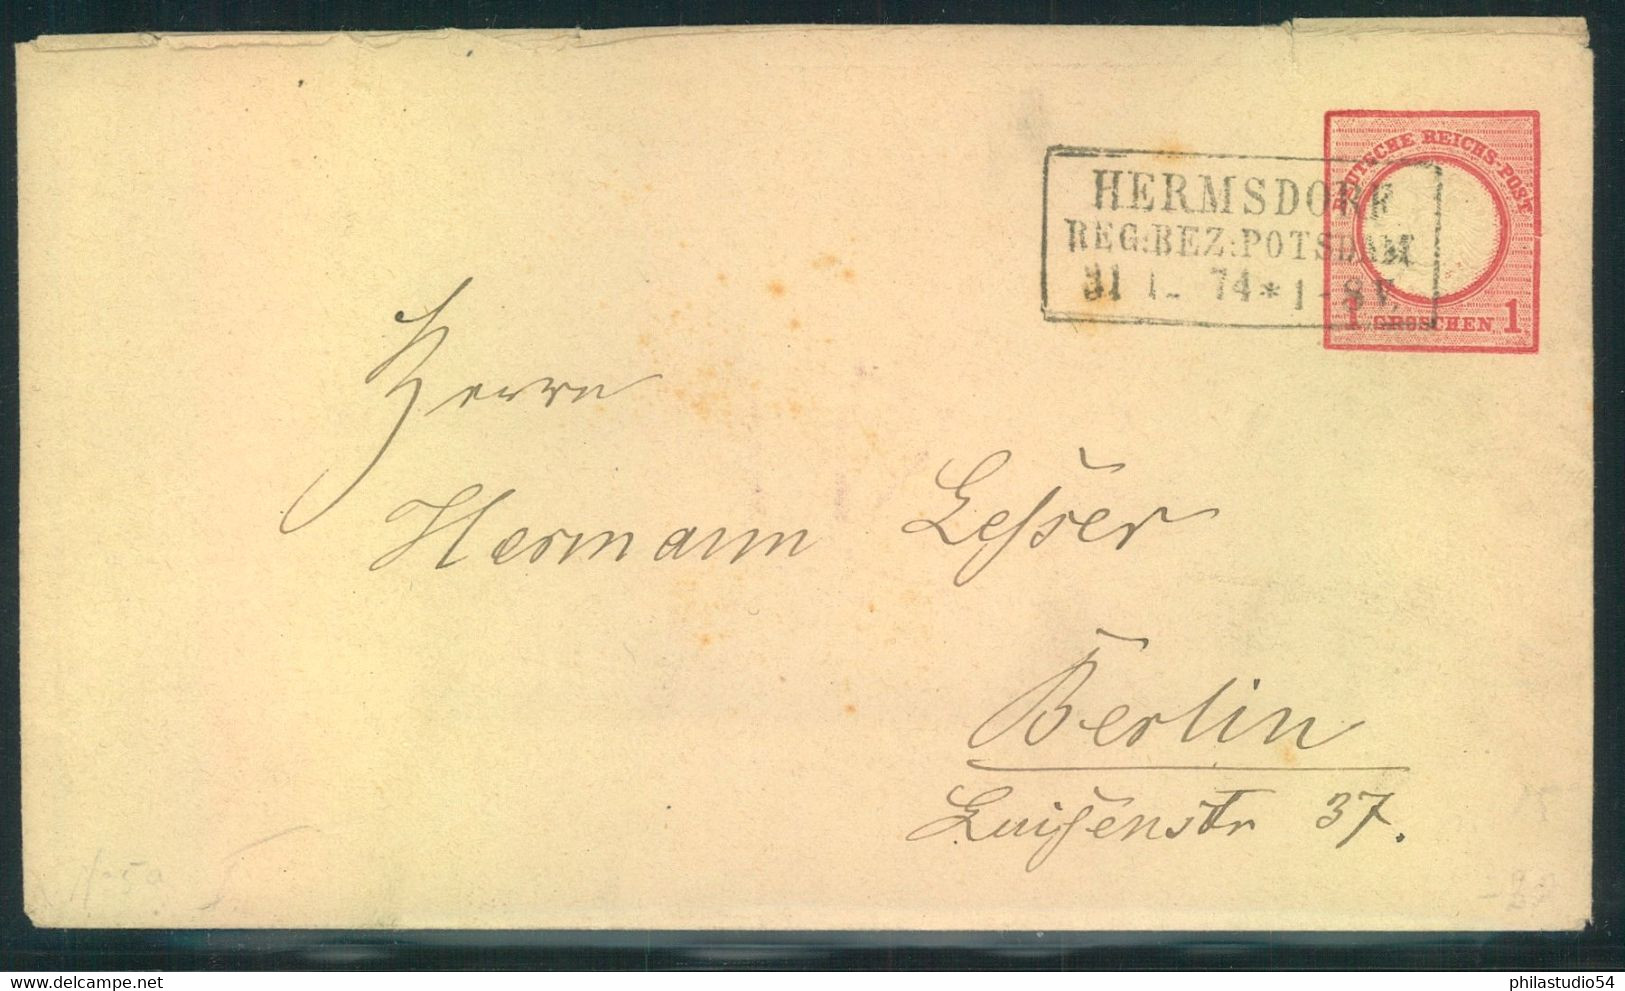 DEUTSCHE REICHS-POST
1 GROSCHEN 1
HERMSDORF
REG:BEZ:POTSDAM
31 1 74 * 1-8 V.
Herrn
Hermann Lesser
Berlin
Luisenstr 37.
philastudio54